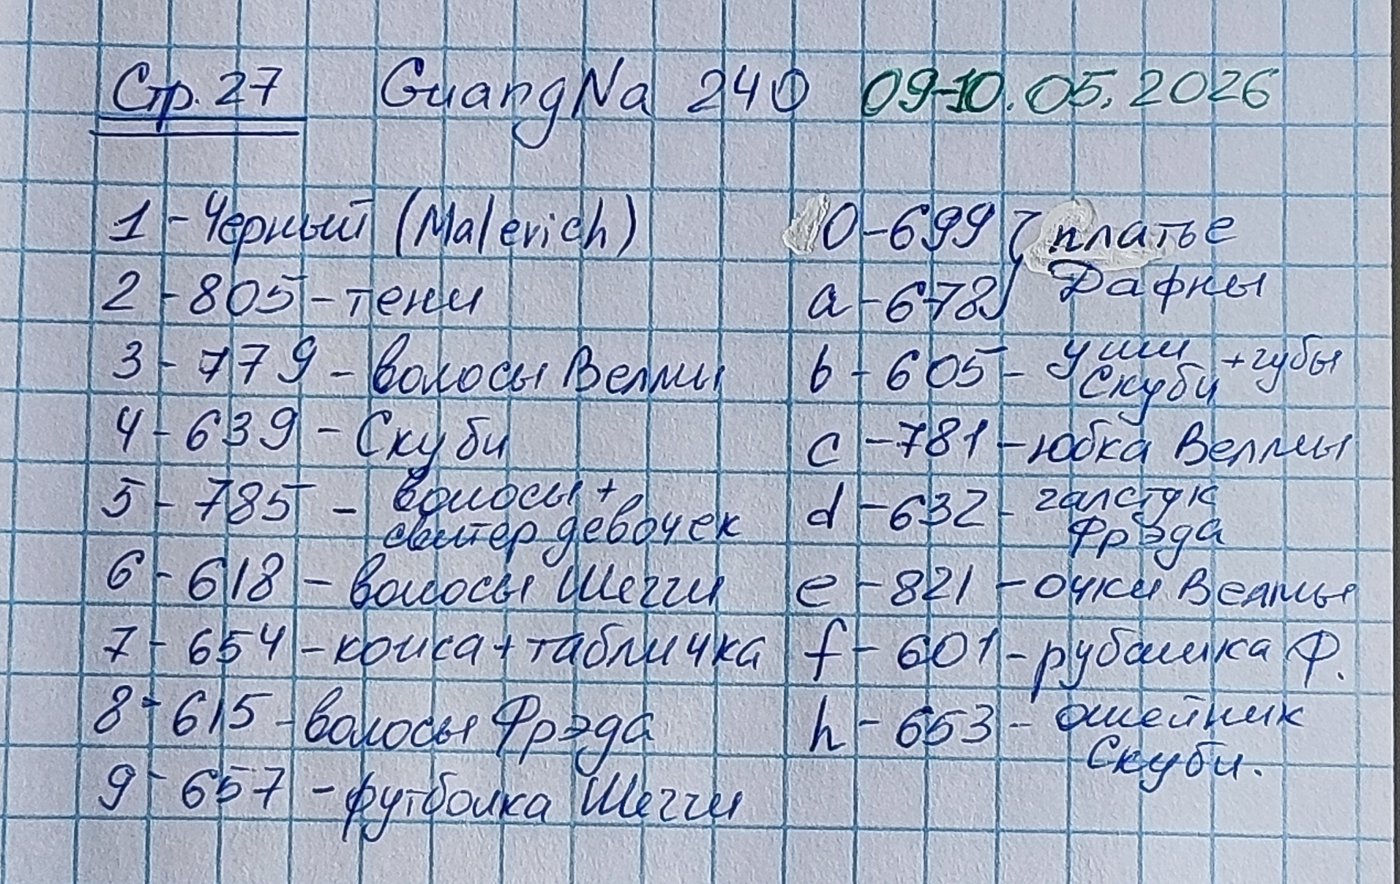 Стр. 27 GuangNa 240 09-10.05.2026
1 - Черный (Malevich)
2 - 805 - тени
3 - 779 - волосы Велмы
4 - 639 - Скуби
5 - 785 - волосы +
свитер девочек
6 - 618 - волосы Шегги
7 - 654 - кожа + табличка
8 - 615 - волосы Фрэда
9 - 657 - футболка Шегги
0 - 699 } платье
a - 678 } Дафны
b - 605 - уши + губы
Скуби
c - 781 - юбка Велмы
d - 632 - галстук
Фрэда
e - 821 - очки Велмы
f - 601 - рубашка Ф.
h - 653 - ошейник
Скуби.